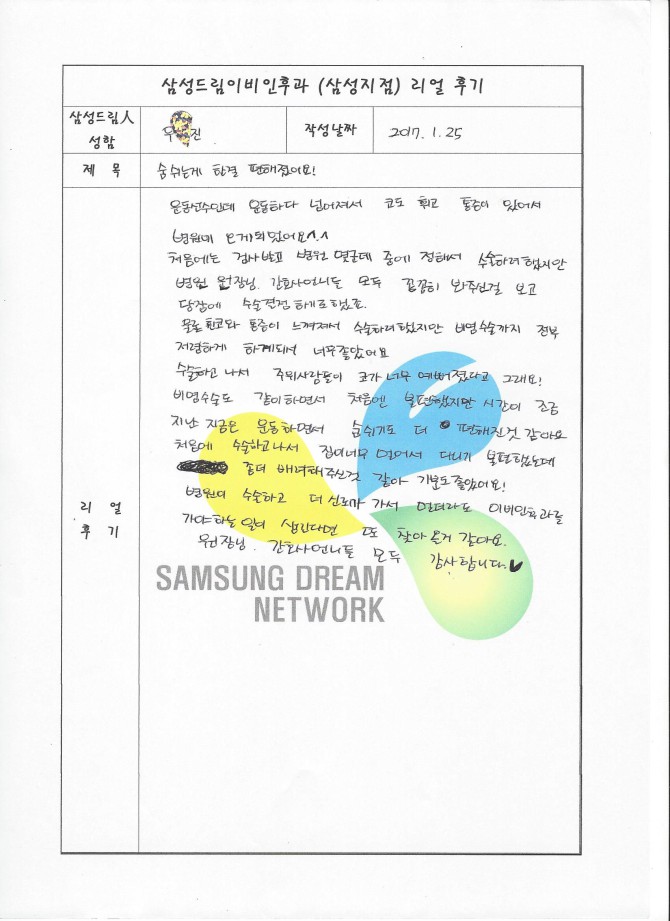 삼성드림이비인후과 (삼성지점) 리얼 후기
삼성드림人 성함
우 진
작성날짜
2017. 1. 25
제 목
숨쉬는게 한결 편해졌어요!
리 얼 후 기
운동선수인데 운동하다 넘어져서 코도 휘고 통증이 있어서
병원에 오게되었어요^.^
처음에는 검사받고 병원 몇군데 중에 정해서 수술하려했지만
병원 원장님. 간호사언니들 모두 꼼꼼히 봐주신걸 보고
당장에 수술결정 하기로했죠.
물론 휜코와 통증이 느껴져서 수술하려했지만 비염수술까지 전부
저렴하게 하게되서 너무좋았어요
수술하고 나서 주위사람들이 코가 너무 예뻐졌다고 그래요!
비염수술도 같이하면서 처음엔 불편했지만 시간이 조금
지난 지금은 운동하면서 숨쉬기도 더 편해진것 같아요
처음에 수술하고나서 집이너무 멀어서 다니기 불편했는데
좀더 배려해주신것 같아 기분도좋았어요!
병원이 수술하고 더 신뢰가 가서 멀더라도 이비인후과를
가야하는일이 생긴다면 또 찾아올거 같아요.
원장님. 간호사언니들 모두 감사합니다.
SAMSUNG DREAM
NETWORK